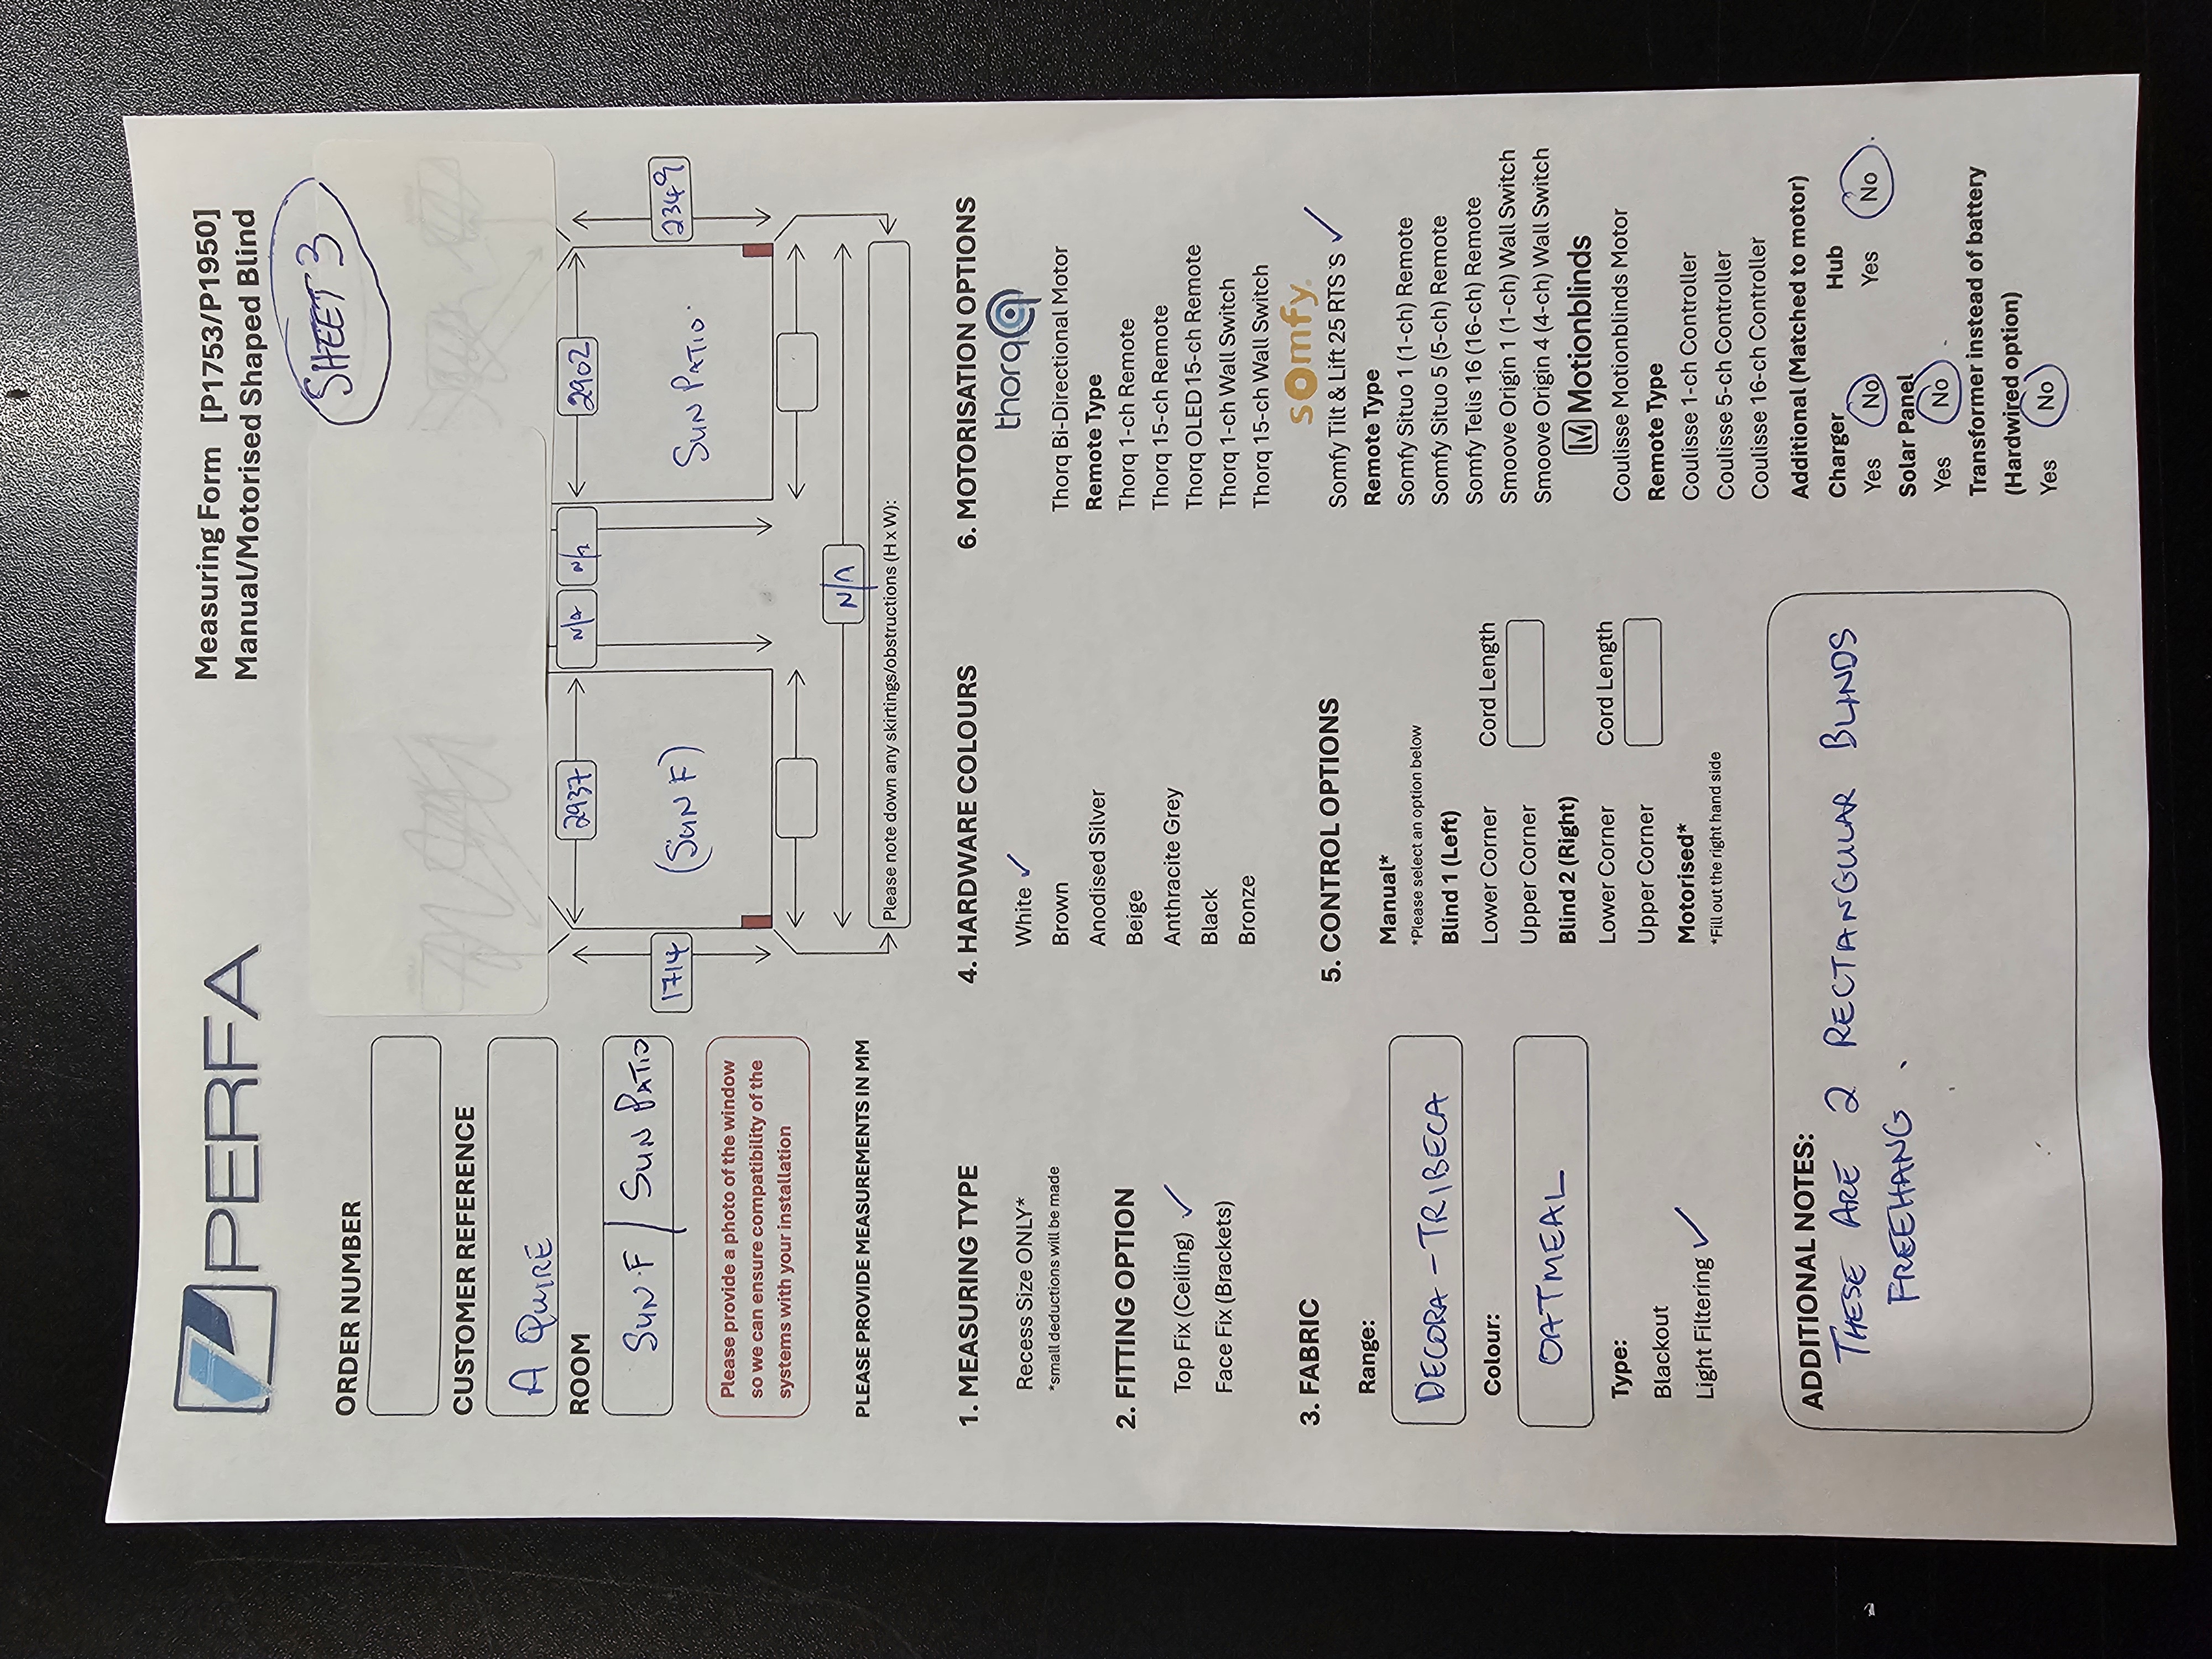 PERFA
Measuring Form [P1753/P1950]
Manual/Motorised Shaped Blind
SHEET 3
ORDER NUMBER
CUSTOMER REFERENCE
A QUIRE
ROOM
SUN.F / SUN PATIO
Please provide a photo of the window
so we can ensure compatibility of the
systems with your installation
PLEASE PROVIDE MEASUREMENTS IN MM
2937
N/A
2902
1714
2349
(SUN F)
SUN PATIO.
N/A
Please note down any skirtings/obstructions (H x W):
1. MEASURING TYPE
Recess Size ONLY*
*small deductions will be made
2. FITTING OPTION
Top Fix (Ceiling) ✓
Face Fix (Brackets)
3. FABRIC
Range:
DECORA - TRIBECA
Colour:
OATMEAL
Type:
Blackout
Light Filtering ✓
4. HARDWARE COLOURS
White ✓
Brown
Anodised Silver
Beige
Anthracite Grey
Black
Bronze
5. CONTROL OPTIONS
Manual*
*Please select an option below
Blind 1 (Left)
Lower Corner
Cord Length
Upper Corner
Blind 2 (Right)
Lower Corner
Cord Length
Upper Corner
Motorised*
*Fill out the right hand side
6. MOTORISATION OPTIONS
thorq
Thorq Bi-Directional Motor
Remote Type
Thorq 1-ch Remote
Thorq 15-ch Remote
Thorq OLED 15-ch Remote
Thorq 1-ch Wall Switch
Thorq 15-ch Wall Switch
somfy.
Somfy Tilt & Lift 25 RTS 'S ✓
Remote Type
Somfy Situo 1 (1-ch) Remote
Somfy Situo 5 (5-ch) Remote
Somfy Telis 16 (16-ch) Remote
Smoove Origin 1 (1-ch) Wall Switch
Smoove Origin 4 (4-ch) Wall Switch
M Motionblinds
Coulisse Motionblinds Motor
Remote Type
Coulisse 1-ch Controller
Coulisse 5-ch Controller
Coulisse 16-ch Controller
Additional (Matched to motor)
Charger Hub
Yes No Yes No
Solar Panel
Yes No
Transformer instead of battery
(Hardwired option)
Yes No
ADDITIONAL NOTES:
THESE ARE 2 RECTANGULAR BLINDS
FREEHANG.